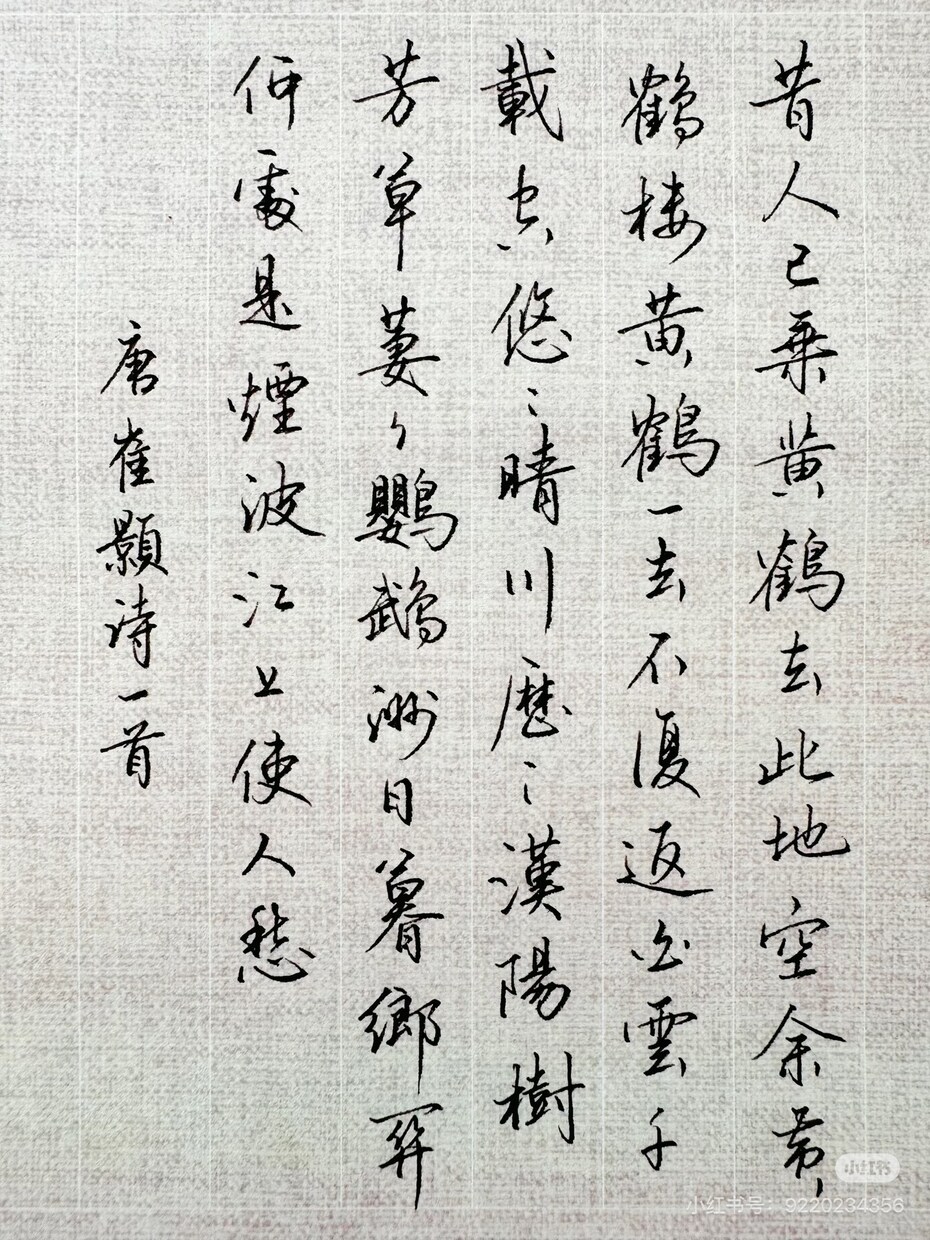 昔人已乘黃鶴去此地空余黃
鶴樓黃鶴一去不復返白雲千
載空悠〻晴川歷〻漢陽樹
芳草萋〻鸚鵡洲日暮鄉關
何處是煙波江上使人愁
唐崔顥诗一首
小红书
小红书号：9220234356